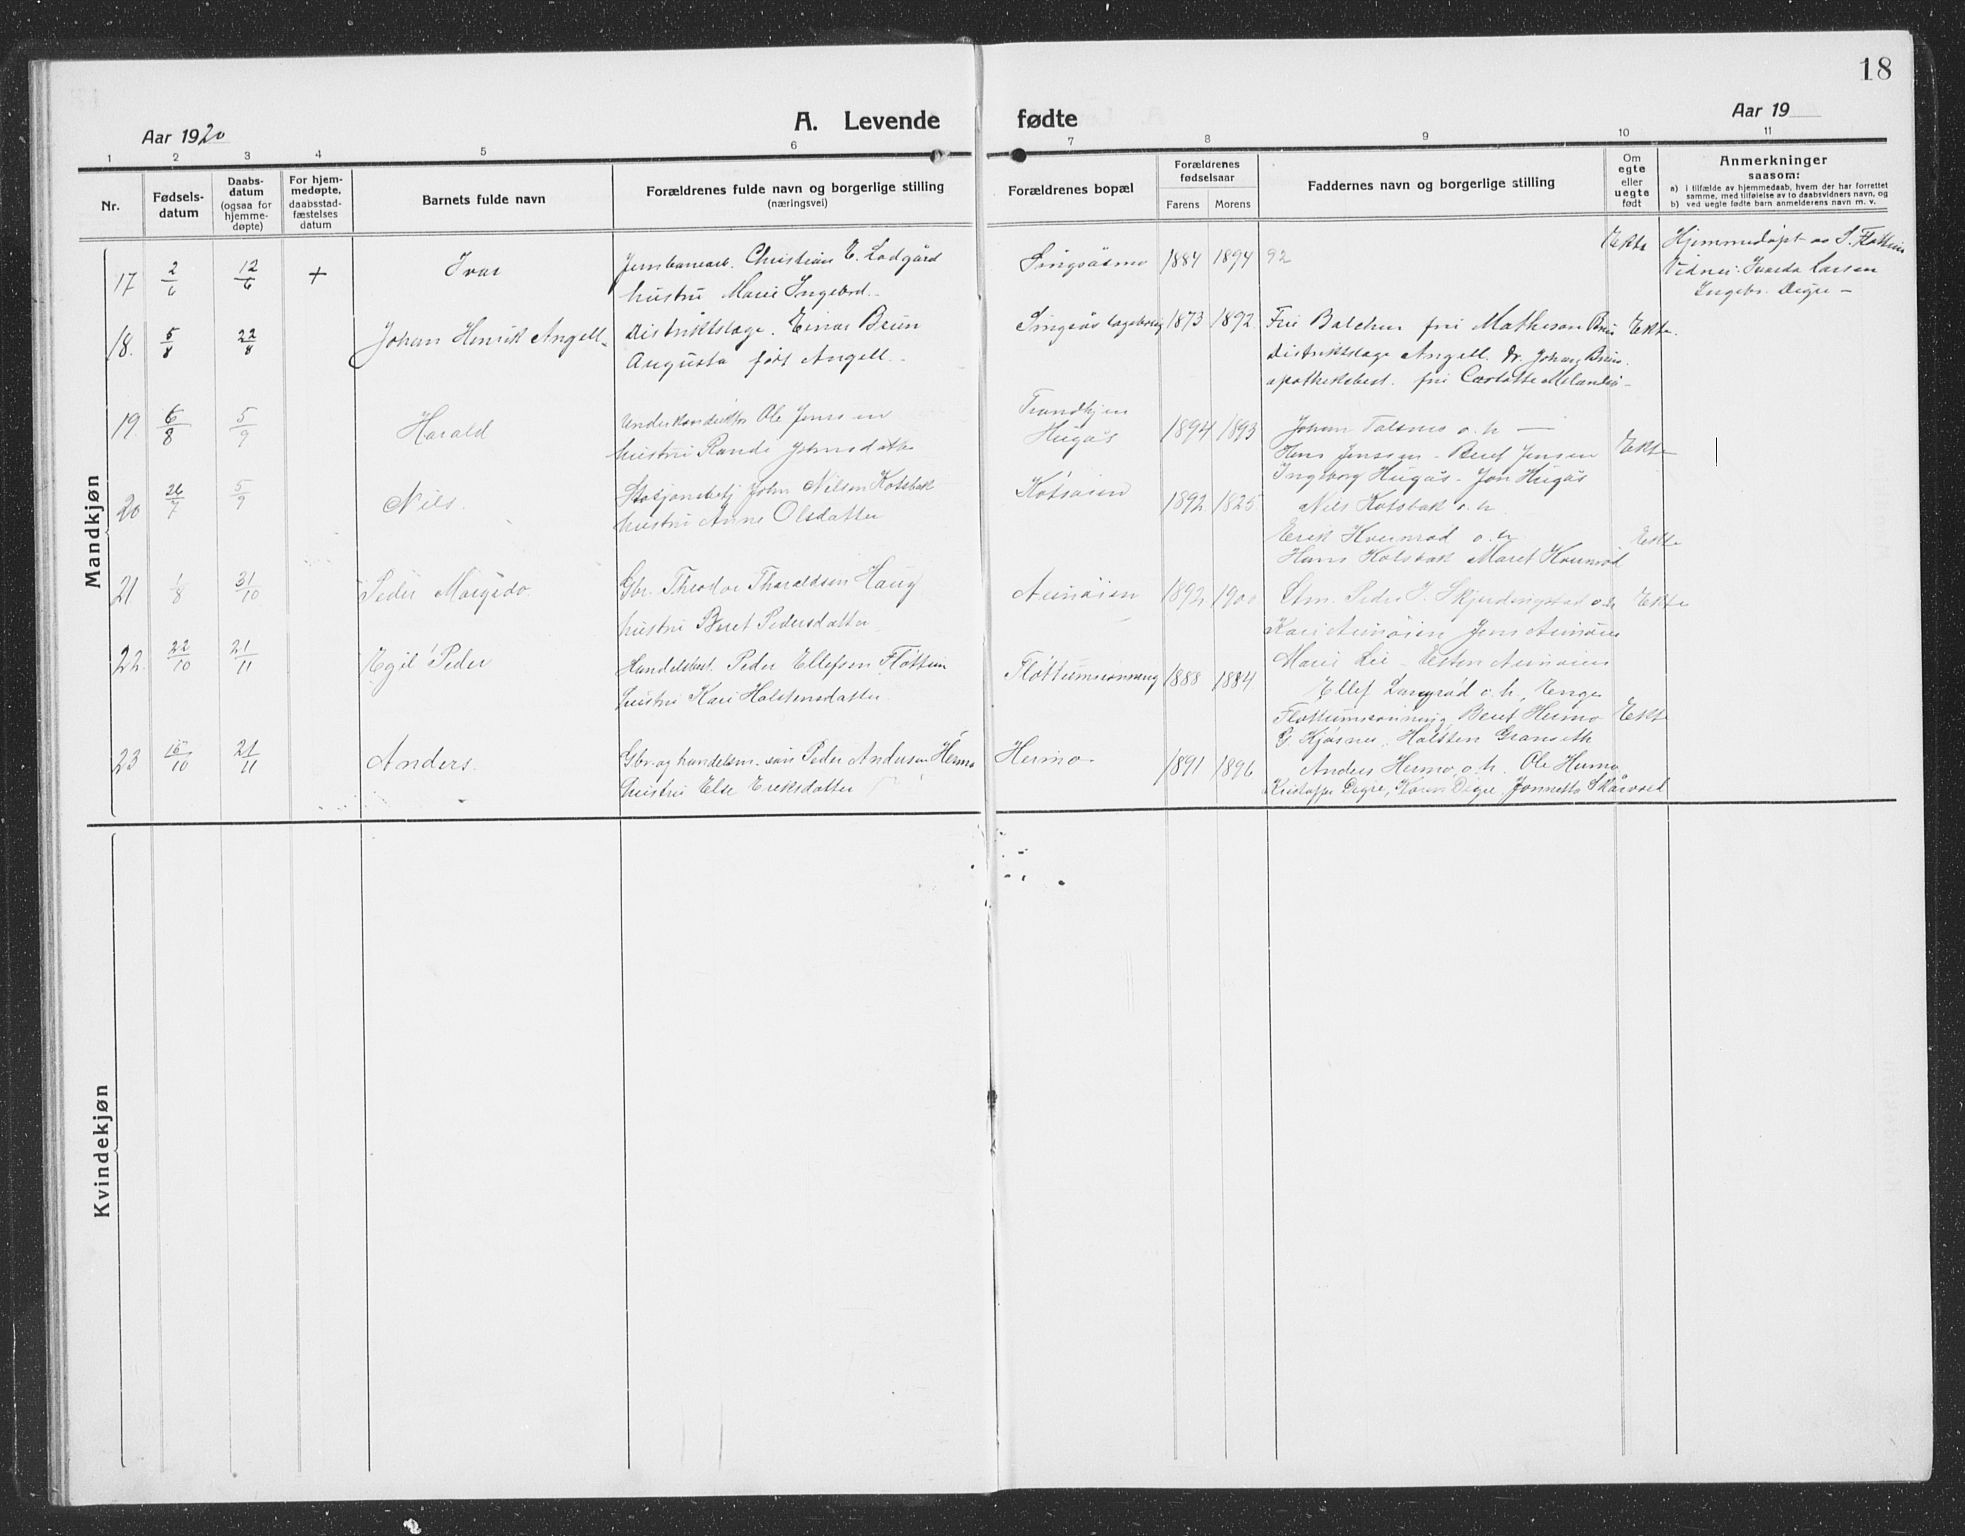 18
Aar 1920
A. Levende fødte
Aar 19
1 2 3 4 5 6 7 8 9 10 11
Nr.
Fødsels-
datum
Daabs-
datum
(ogsaa for
hjemme-
døpte)
For hjem-
medøpte,
daabsstad-
fæstelses
datum
Barnets fulde navn
Forældrenes fulde navn og borgerlige stilling
(næringsvei)
Forældrenes bopæl
Forældrenes
fødselsaar
Farens Morens
Faddernes navn og borgerlige stilling
Om
egte
eller
uegte
født
Anmerkninger
saasom:
a) i tilfælde av hjemmedaab, hvem der har forrettet
samme, med tilføielse av to daabsvidners navn, og
b) ved uegte fødte barn anmelderens navn m. v.
Mandkjøn
17 2/6 12/6 + Ivar
Jernbanearb. Christian E. Lodgård
hustru Marie Ingebrd.
Singsåsmo 1884 1894 92 Ekte
Hjemmedøpt av S. Fløttum
Vidner: Larsen
Ingebr. Digre –
18. 5/8 22/8 Johan Henrik Angell
Distriktslæge. Einar Brun
Augusta født Angell.
Singsås lægebolig 1873 1892
Fru Balchen fru Matheson Brun Ekte.
distriktslæge Angell. Dr. Johan Brun.
apothekbest. fru Carlotte Melander
19. 6/8 5/9 Harald
Underkonduktør Ole Jenssen
hustru Randi Johnsdatter
Trondhjem
Hugås 1894 1893
Johan Talsnes o. h –
Hans Jenssen – Beret Jensen Ekte
Ingeborg Hugås. Jon Hugås
20 26/7 5/9 Nils.
Stasjonsbetj John Nilsen Kotsbak
hustru Anne Olsdatter
Kotsøien 1892 1825
Nils Kotsbak o. h.
Erik Kverrød o. h Ekte
Hans Kotsbak Maret Kverrød
21 1/8 31/10 Peder Margido
Gbr. Theodor Tharaldsen Haug
hustru Beret Pedersdatter
Aunøien 1892 1900
Peder J. Skjerdingstad o. h Ekte
Kari Aunøien Jens Aunøien
Marit Lie – Aunøien
22. 22/10 21/11 Egil Peder
Handelsbest. Peder Ellefsen Fløttum
hustru Kari Halstensdatter
Fløttumsrønning 1888 1884
Ellef Langrød o. h, Inge
Fløttumsrønning Beret Hermo Ekte
G Kjøsnes, Halsten Granseth
23 15/10 21/11 Anders.
Gbr. og handelsm. Peder Andersen Hermo
hustru Else Eriksdatter
Hermo 1891 1896
Anders Hermo, o. h. Ole Hermo,
Kristoffer Digre, Karen Digre, Jonnetta Skårvold
Kvindekjøn